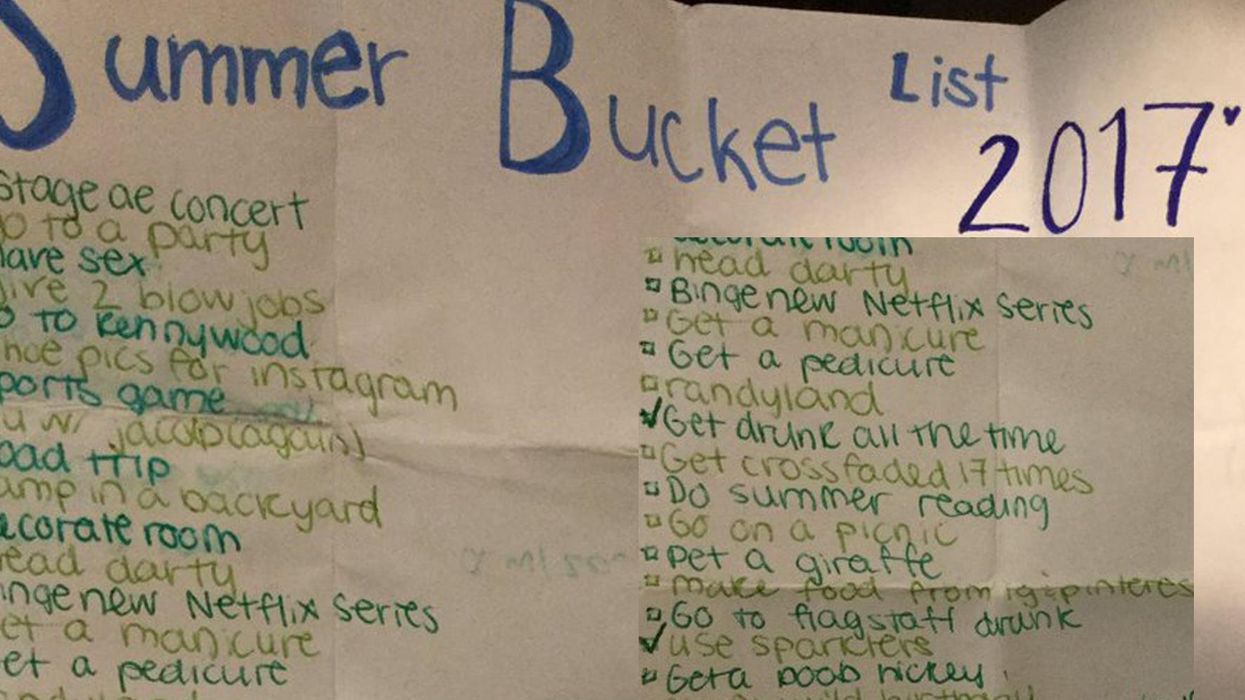 Summer Bucket List
2017
Stage ae concert
to a party
have sex
give 2 blow jobs
TO Kennywood
pics for instagram
sports game
w/ jacob (again)
road trip
camp in a backyard
decorate room
head darty
Binge new Netflix series
Get a manicure
Get a pedicure
decorate room
head darty
Binge new Netflix series
Get a manicure
Get a pedicure
randyland
Get drunk all the time
Get crossfaded 17 times
Do summer reading
Go on a picnic
pet a giraffe
make food from ig/pinteres
Go to flagstaff drunk
use sparklers
Get a boob hickey